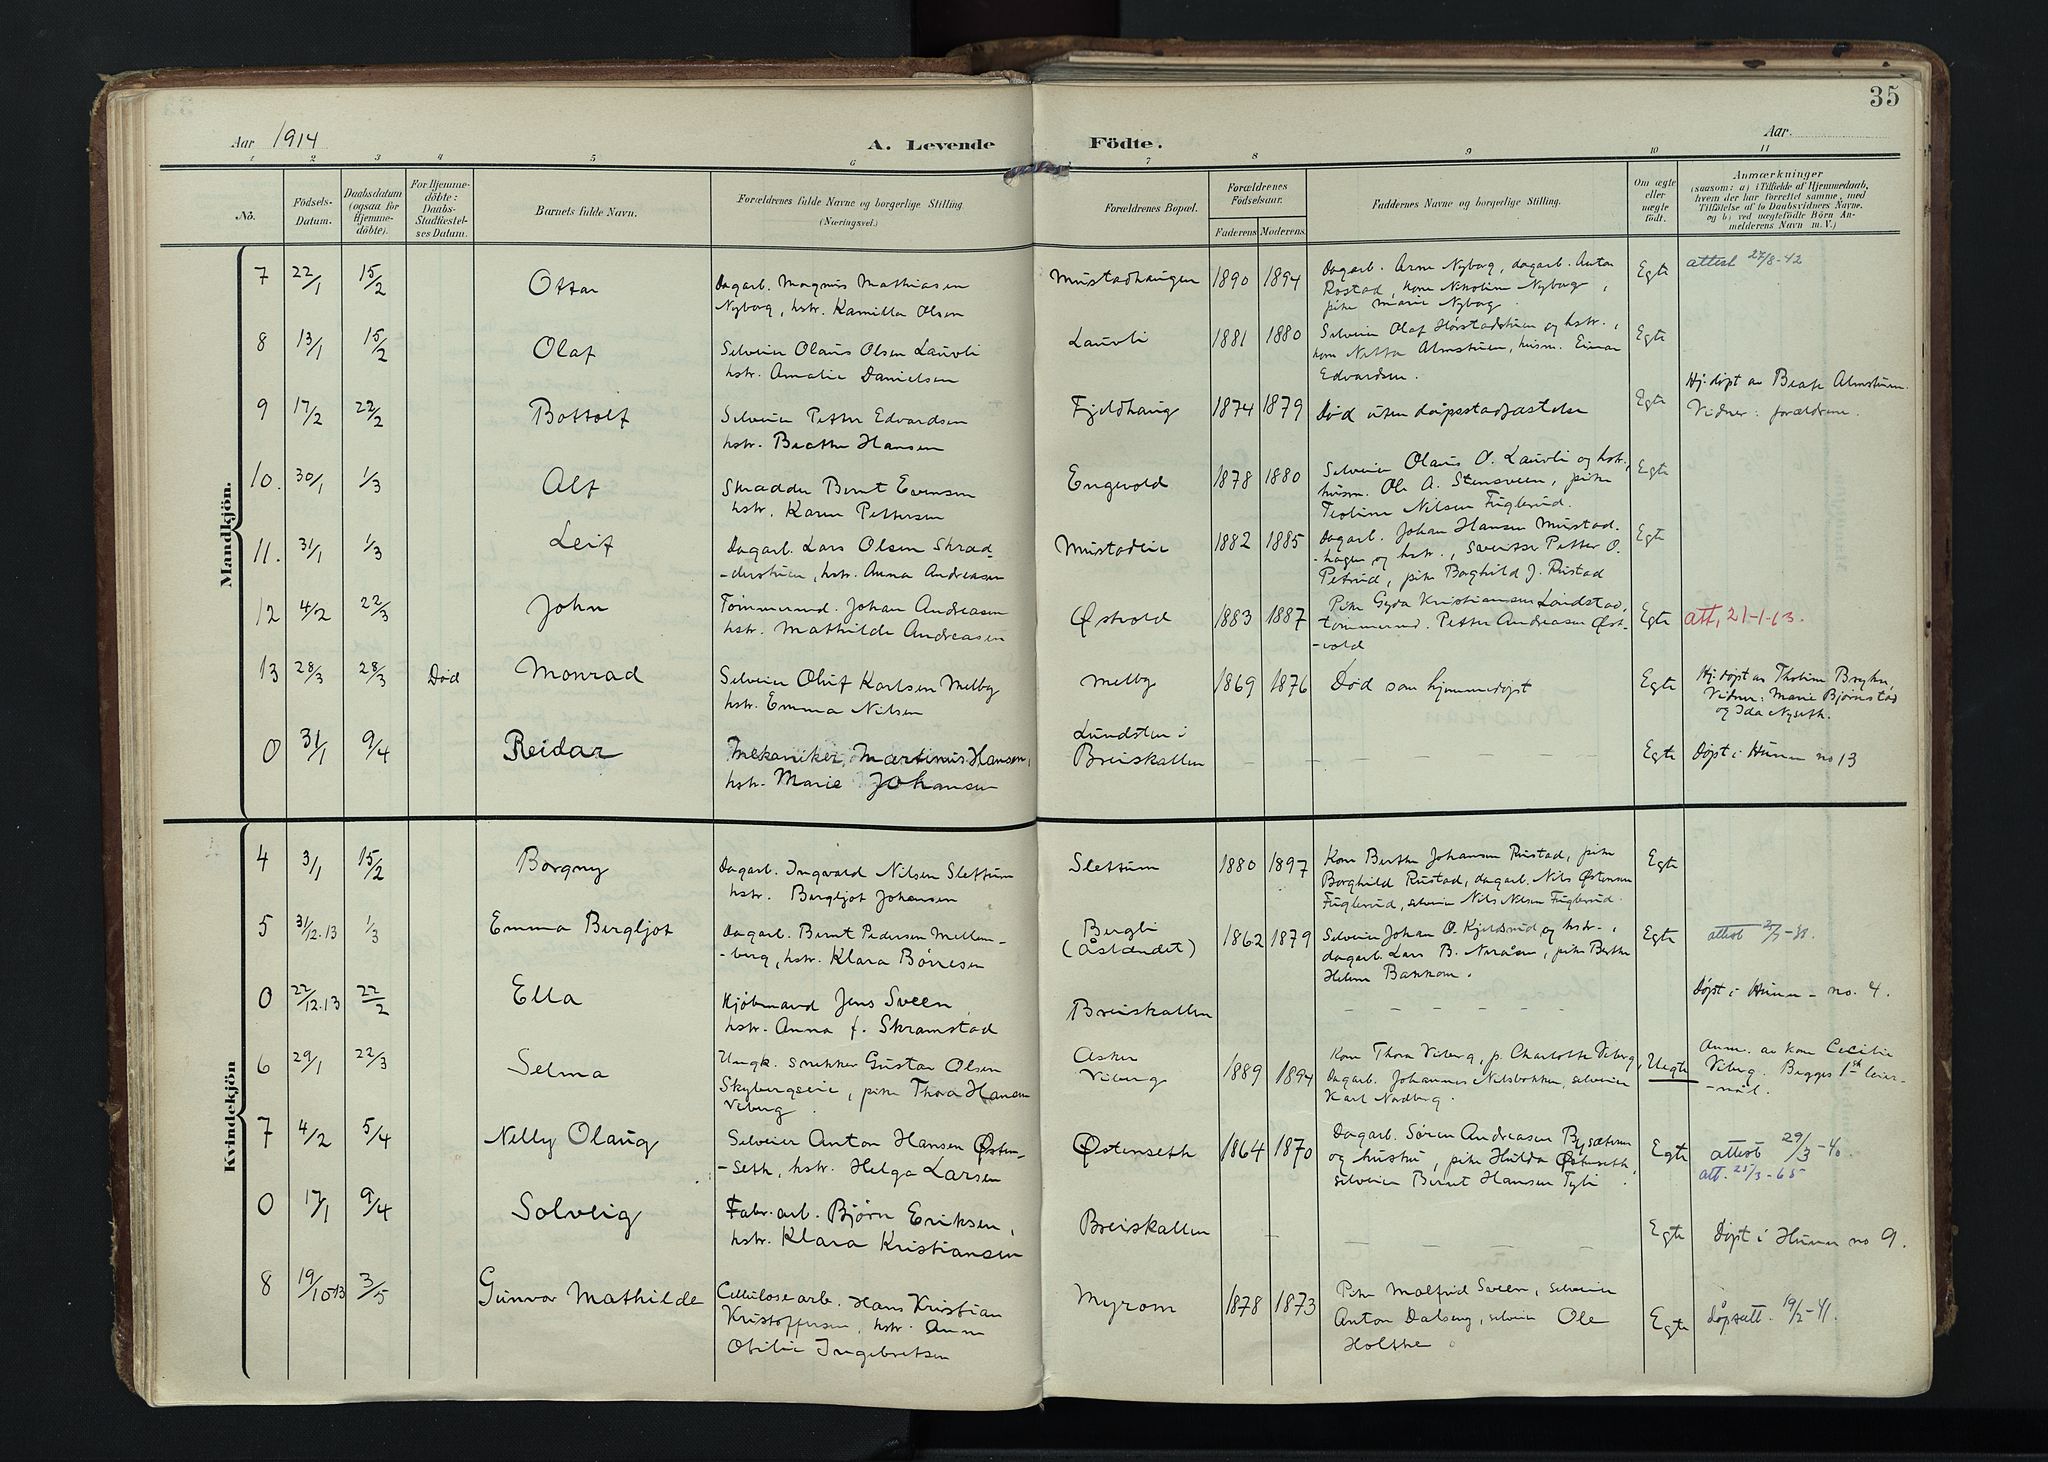 35
Aar 1914
A. Levende Födte.
Aar.
1 2 3 4 5 6 7 8 9 10 11
No.
Födsels-Datum.
Daabsdatum (ogsaa for Hjemme-döbte).
For Hjemme-döbte: Daabs-Stadfæstel-ses Datum.
Barnets fulde Navn.
Forældrenes fulde Navne og borgerlige Stilling. (Næringsvei.)
Forældrenes Bopæl.
Forældrenes Födselsaar.
Faderens Moderens.
Faddernes Navne og borgerlige Stilling.
Om ægte eller uægte födt.
Anmærkninger
(saasom: a) i Tilfælde af Hjemmedaab,
hvem der har forrettet samme, med
Tilföielse af to Daabsvidners Navne.
og b) ved uægtefödte Börn An-
melderens Navn m. V.)
Mandkjön.
7 22/1 15/2 Ottar
Dagarb. Magnus Mathiasen
Nyborg, hstr. Kamilla Olsen
Mustadhaugen 1890 1894
Dagarb. Arne Nyborg, dagarb. Anton
Rostad, kone Nikoline Nyborg,
pike Marie Nyborg.
Egte attest 27/8-42
8 13/1 15/2 Olaf
Selveier Olaus Olsen Lauvli
hstr. Amalie Danielsen
Lauvli 1881 1880
Selveier Olaf Hørstadstuen og hstr.,
kone Netta Almstuen, husm. Einar
Edvardsen.
Egte
9 17/2 22/2 Bottolf
Selveier Petter Edvardsen
hstr. Beathe Hansen
Fjeldhaug 1874 1879
Død uten dåpsstadfæstelse
Egte
Hj.døpt av Beate Almstuen.
Vidner: forældrene.
10. 30/1 1/3 Alf
Skradder Bernt Evensen
hstr. Karen Pettersen
Engevold 1878 1880
Selveier Olaus O. Lauvli og hstr.,
husm. Ole A. Stensveen, pike
Teoline Nilsen Fuglerud.
Egte
11. 31/1 1/3 Leif
Dagarb. Lars Olsen Skrad-
-derstuen, hstr. Anna Andreasen
Mustadeie 1882 1885
Dagarb. Johan Hansen Mustad-
-hagen og hstr., Petter O.
Petrud, pike Borghild J. Rustad
Egte
12 4/2 22/3 John
Tømmermd. Johan Andreasen
hstr. Mathilde Andreasen
Østvold 1883 1887
Pike Gyda Kristiansen Lindstad,
tømmermd. Petter Andreasen Øst-
-vold
Egte att, 21-1-63.
13 28/3 28/3 Død Monrad
Selveier Oluf Karlsen Melby
hstr. Emma Nilsen
Melby 1869 1876
Død som hjemmedøpt
Egte
Hj.døpt av Bryhn,
Vidner: Marie Bjørnstad
og Ida Nyseth.
0 31/1 9/4 Reidar
Mekaniker Martinus Hansen,
hstr. Marie Johansen
Lundsten i
Breiskallen
Egte Døpt i Hunn no 13
Kvindekjön
4 3/1 15/2 Borgny
Dagarb. Ingvald Nilsen Slettum
hstr. Bergljot Johansen
Slettum 1880 1897
Kone Berthe Johansen Rustad, pike
Borghild Rustad, dagarb. Nils Østensen
Fuglerud, selveier Nils Nilsen Fuglerud.
Egte
5 31/12.13 1/3 Emma Bergljot
Dagarb. Bernt Pedersen Mellem-
-berg, hstr. Klara Børresen
Bergli
(Åslandet) 1862 1879
Selveier Johan O. Kjelsrud og hstr.,
dagarb. Lars B. Neråsen, pike Berthe
Helene Bakkom.
Egte attest
0 22/12.13 22/2 Ella
Kjøbmand Jens Sveen
hstr. Anna f. Skramstad
Breiskallen
Døpt i Hunn - no. 4.
6 29/1 22/3 Selma
Ungk. snekker Gustav Olsen
Skybergseie, pike Thora Hansen
Viberg
Asker
Viberg 1889 1894
Kone Thora Viberg, p. Charlotte Viberg,
Dagarb. Johannes Nilsbakken, selveier
Karl Nordberg.
Uegte
Anm. av kone Cecilie
Viberg. Begges 1ste leier-
-mål.
7 4/2 5/4 Nelly Olaug
Selveier Anton Hansen Østen-
-seth, hstr. Helga Larsen
Østenseth 1864 1870
Dagarb. Søren Andreasen Bysæteren
og hustru, pike Hulda Østenseth,
selveier Bernt Hansen Tyli.
Egte
attest 29/3-40.
att. 25/3-65
0 17/1 9/4 Solveig
Fabr.arb. Bjørn Eriksen,
hstr. Klara Kristiansen
Breiskallen
Egte Døpt i Hunn no 9.
8 19/10-13 3/5 Gunvor Mathilde
Cellulosearb. Hans Kristian
Kristoffersen, hstr. Anne
Otilie Ingebretsen
Myrom 1878 1873
Pike Malfrid Sveen, selveier
Anton Dalseng, selveier Ole
Holthe
Egte døpsatt. 19/2-41.